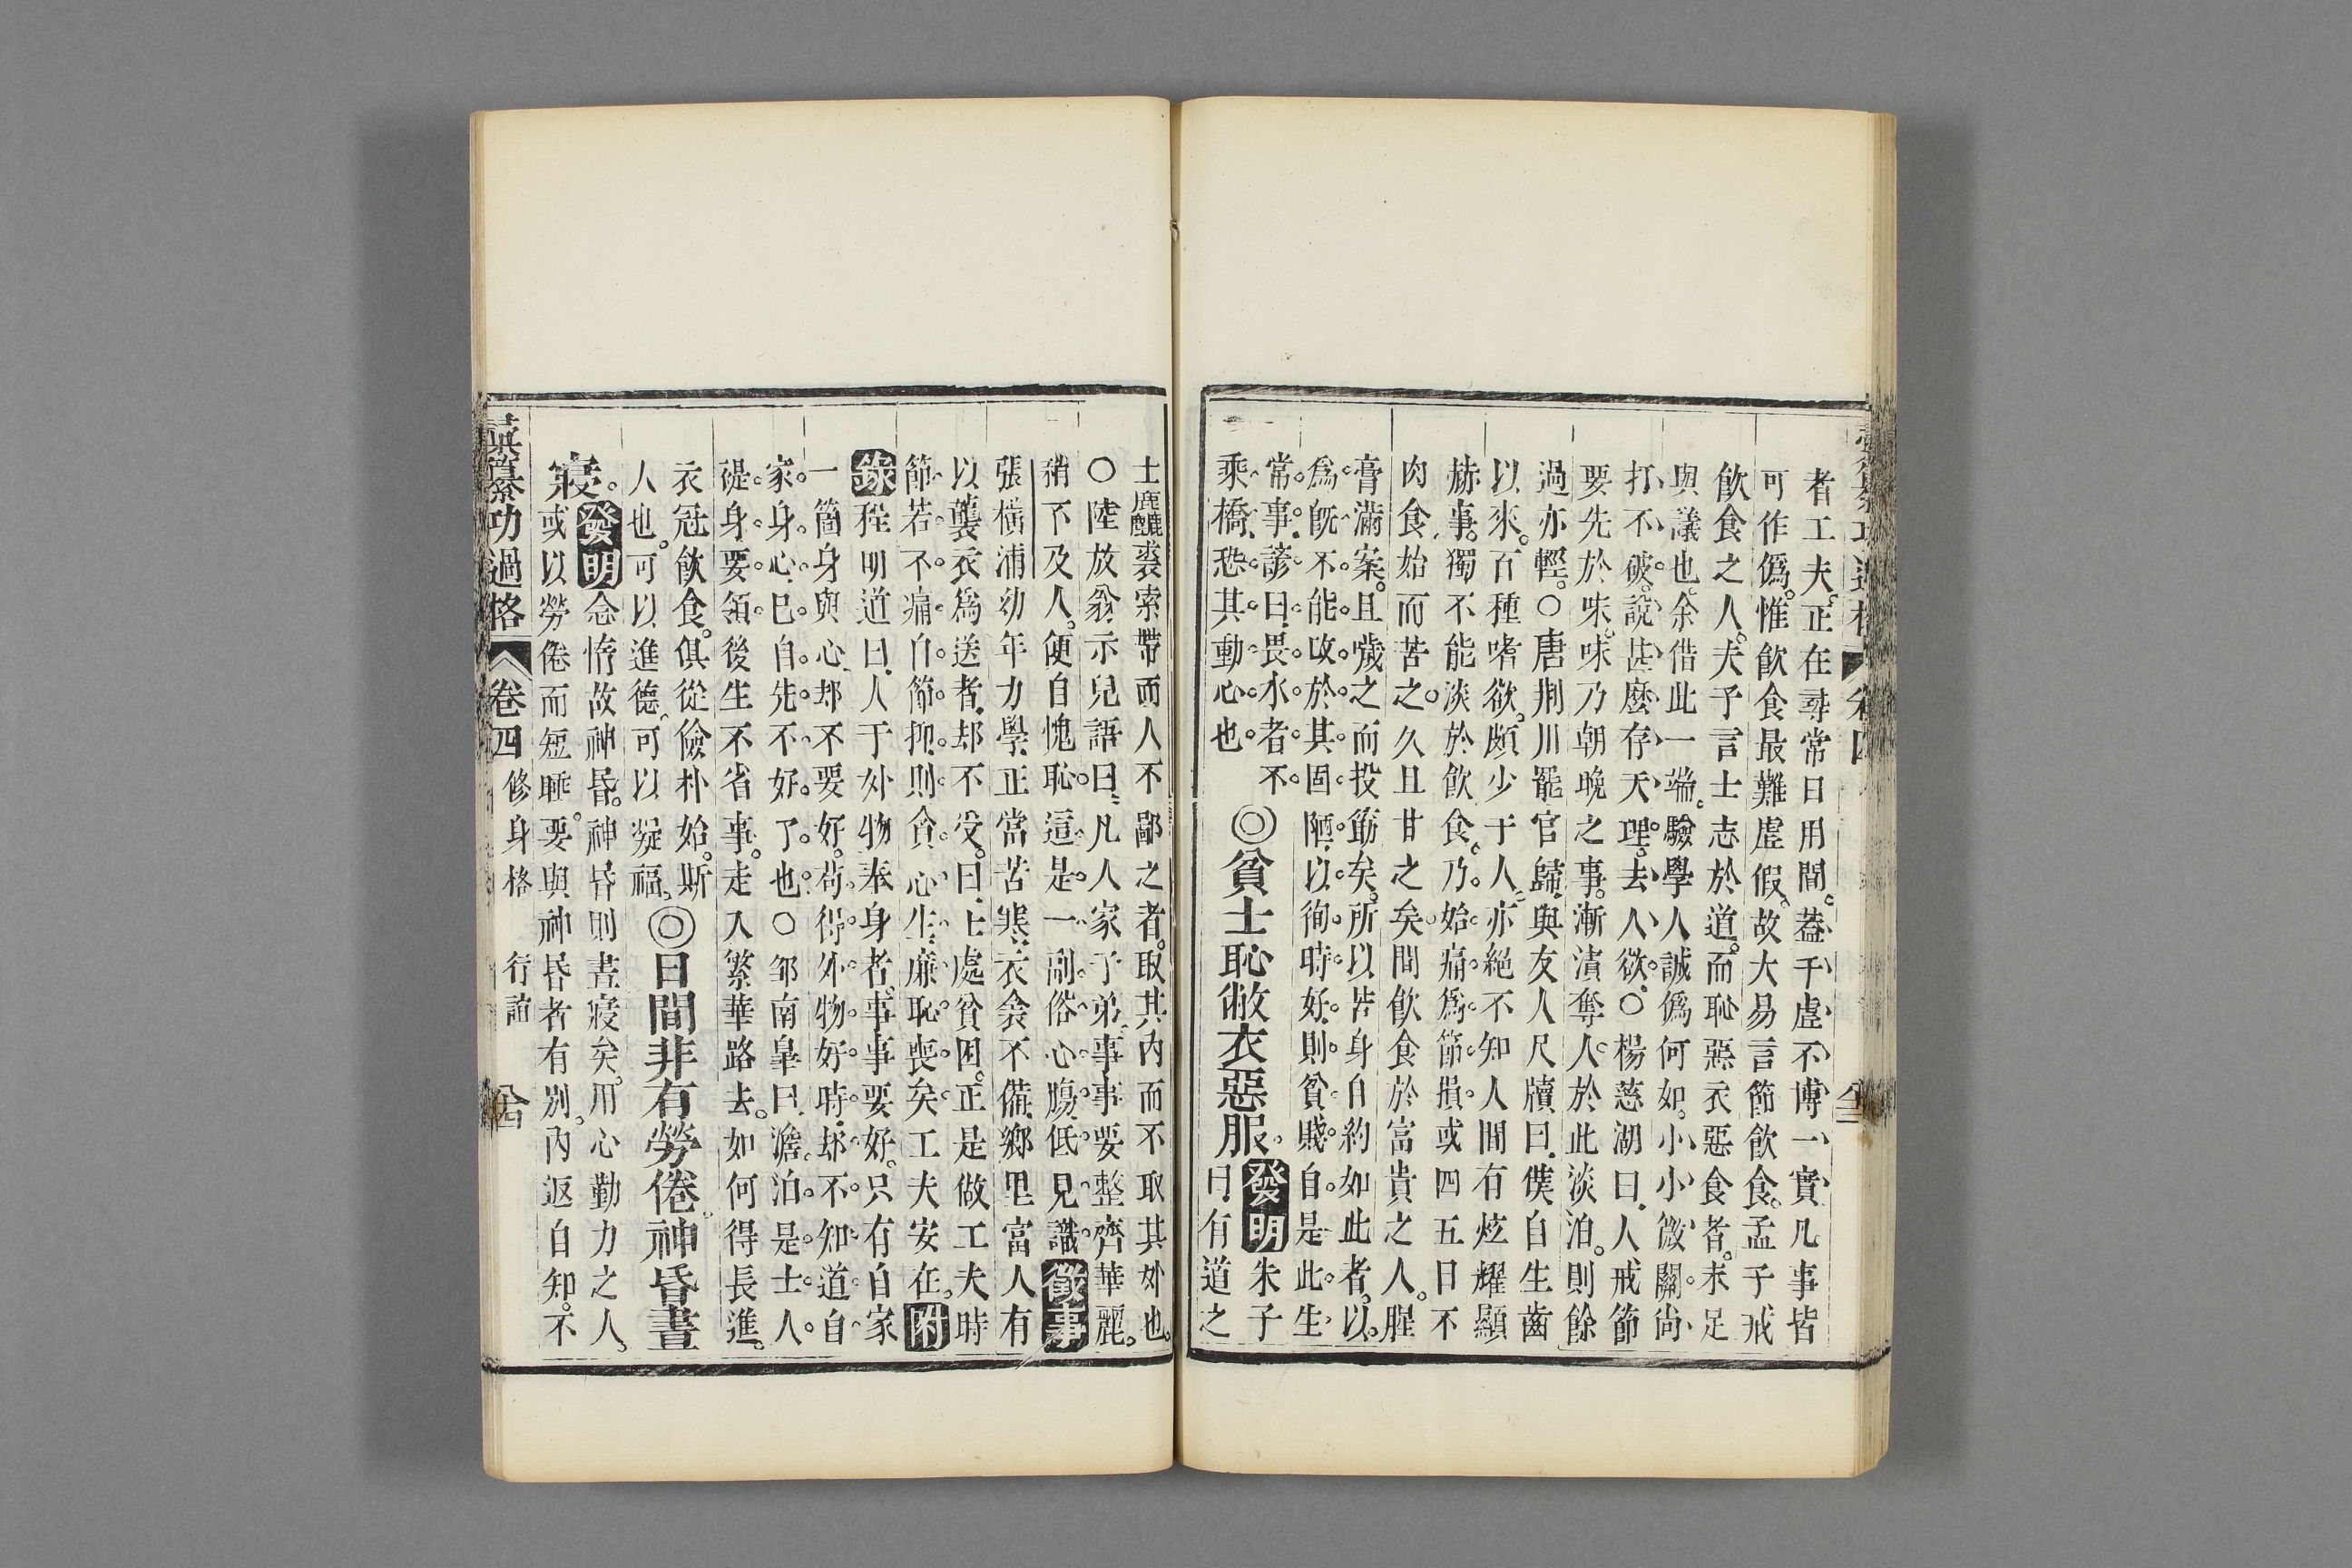 者工夫正在尋常日用間蓋千虛不博一實凡事皆
可作僞惟飲食最難虛假故大易言節飲食孟子戒
飲食之人夫子言士志於道而恥惡衣惡食者未足
與議也余借此一端驗學人誠僞何如小小微關尚
打不破說甚麼存天理去人欲○楊慈湖曰人戒節
要先於味味乃朝晚之事漸漬奪人於此淡泊則餘
過亦輕○唐荆川罷官歸與友人尺牘曰僕自生齒
以來百種嗜欲頗少于人亦絕不知人間有炫耀顯
赫事獨不能淡於飲食乃始痛爲節損或四五日不
肉食始而苦之久且甘之矣間飲食於富貴之人腥
膏滿案且噦之而投筯矣所以苦身自約如此者以
爲旣不能改於其固陋以徇時好則貧賤自是此生
常事諺曰畏水者不
乘橋恐其動心也
◎貧士恥敝衣惡服
發明朱子
曰有道之
士鹿麤裘索帶而人不鄙之者取其内而不取其外也
○陸放翁示兒語曰凡人家子弟事事要整齊華麗
稍不及人便自愧恥這是一副俗心膓低見識徵事
張橫浦幼年力學正當苦寒衣衾不備鄉里富人有
以襲衣爲送者却不受曰士處貧困正是做工夫時
節若不痛自節抑則貪心生廉恥喪矣工夫安在附
錄程明道曰人于外物奉身者事事要好只有自家
一箇身與心却不要好苟得外物好時却不知道自
家身心已自先不好了也○鄒南臯曰澹泊是士人
禔身要領後生不省事走入繁華路去如何得長進
衣冠飲食俱從儉朴始斯
人也可以進德可以凝福
◎日間非有勞倦神昏晝
寢
發明念惰故神昏神昏則晝寢矣用心勤力之人
或以勞倦而短睡要與神昏者有別内返自知不
彙纂功過格 卷四 修身格 行誼 八四